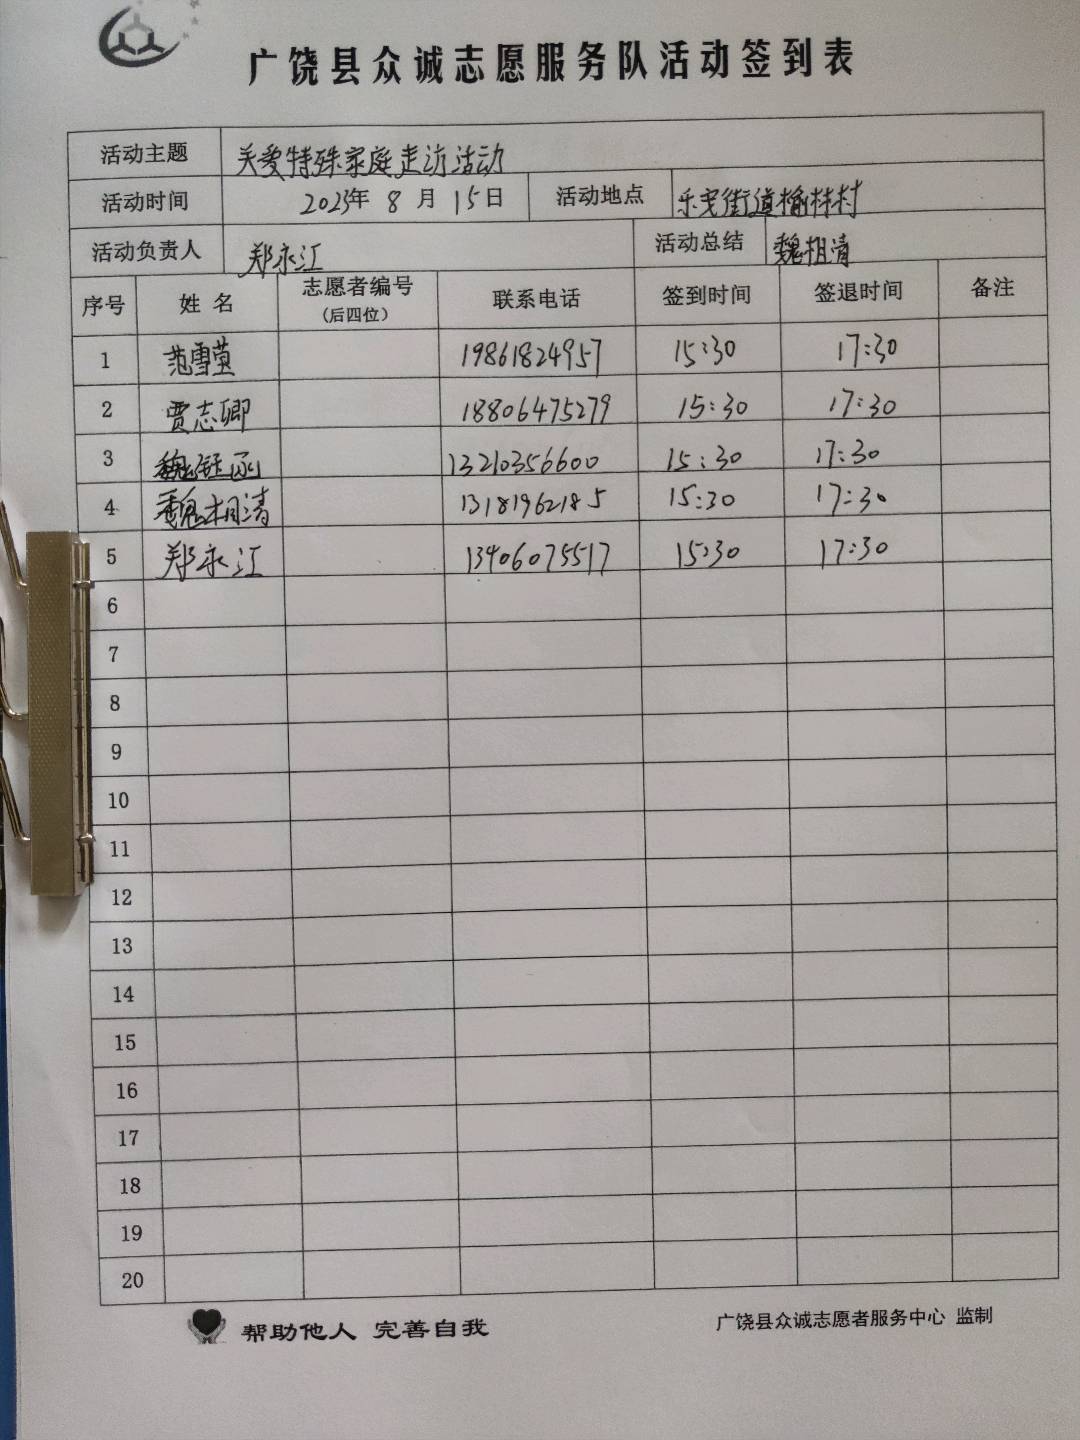 广饶县众诚志愿服务队活动签到表
活动主题 关爱特殊家庭走访活动
活动时间 2023年 8 月 15日 活动地点 乐安街道榆林村
活动负责人 郑永江 活动总结 魏相清
序号 姓 名 志愿者编号 (后四位) 联系电话 签到时间 签退时间 备注
1 范雪莹 19861824957 15:30 17:30
2 贾志卿 18806475279 15:30 17:30
3 魏钰函 13210356600 15:30 17:30
4 魏相清 13181962185 15:30 17:30
5 郑永江 13406075517 15:30 17:30
6
7
8
9
10
11
12
13
14
15
16
17
18
19
20
帮助他人 完善自我 广饶县众诚志愿者服务中心 监制